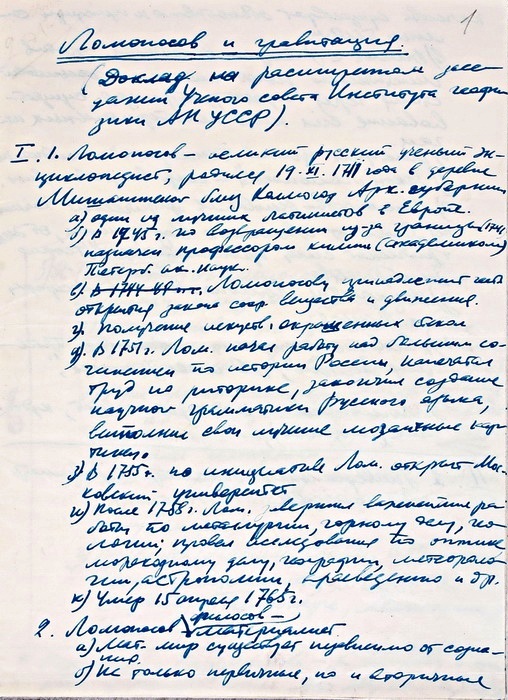 1
Ломоносов и гравитация.
(Доклад на расширенном засе-
дании Ученого совета Института геофи-
зики АН УССР).
I. 1. Ломоносов – великий русский ученый эн-
циклопедист, родился 19.XI.1711 года в деревне
Мишанинской близ Холмогор Арх. губернии
а) один из лучших латинистов в Европе.
б) В 1745 г. по возвращении из-за границы 1741
назначен профессором химии (академиком)
Петерб. ак. наук.
в) Ломоносову принадлежит честь
открытия закона сохр. вещества и движения.
г) получение искуств. окрашенных стекол
д) В 1751 г. Лом. начал работу над большим со-
чинением по истории России, напечатал
труд по риторике, закончил создание
научной грамматики Русского языка,
выполнил свои лучшие мозаичные кар-
тины.
В 1755 г. по инициативе Лом. открыт Мос-
ковский университет
и) После 1756 г. Лом. завершил важнейшие ра-
боты по металургии, горному делу, гео-
логии; провел исследования по оптике
мореходному делу, географии, метеороло-
гии, астрономии, краеведению и др.
к) Умер 15 апреля 1765 г.
2. Ломоносов философ-
материалист
а) Мат. мир существует независимо от созна-
ния.
б) Не только первичные, но и вторичные